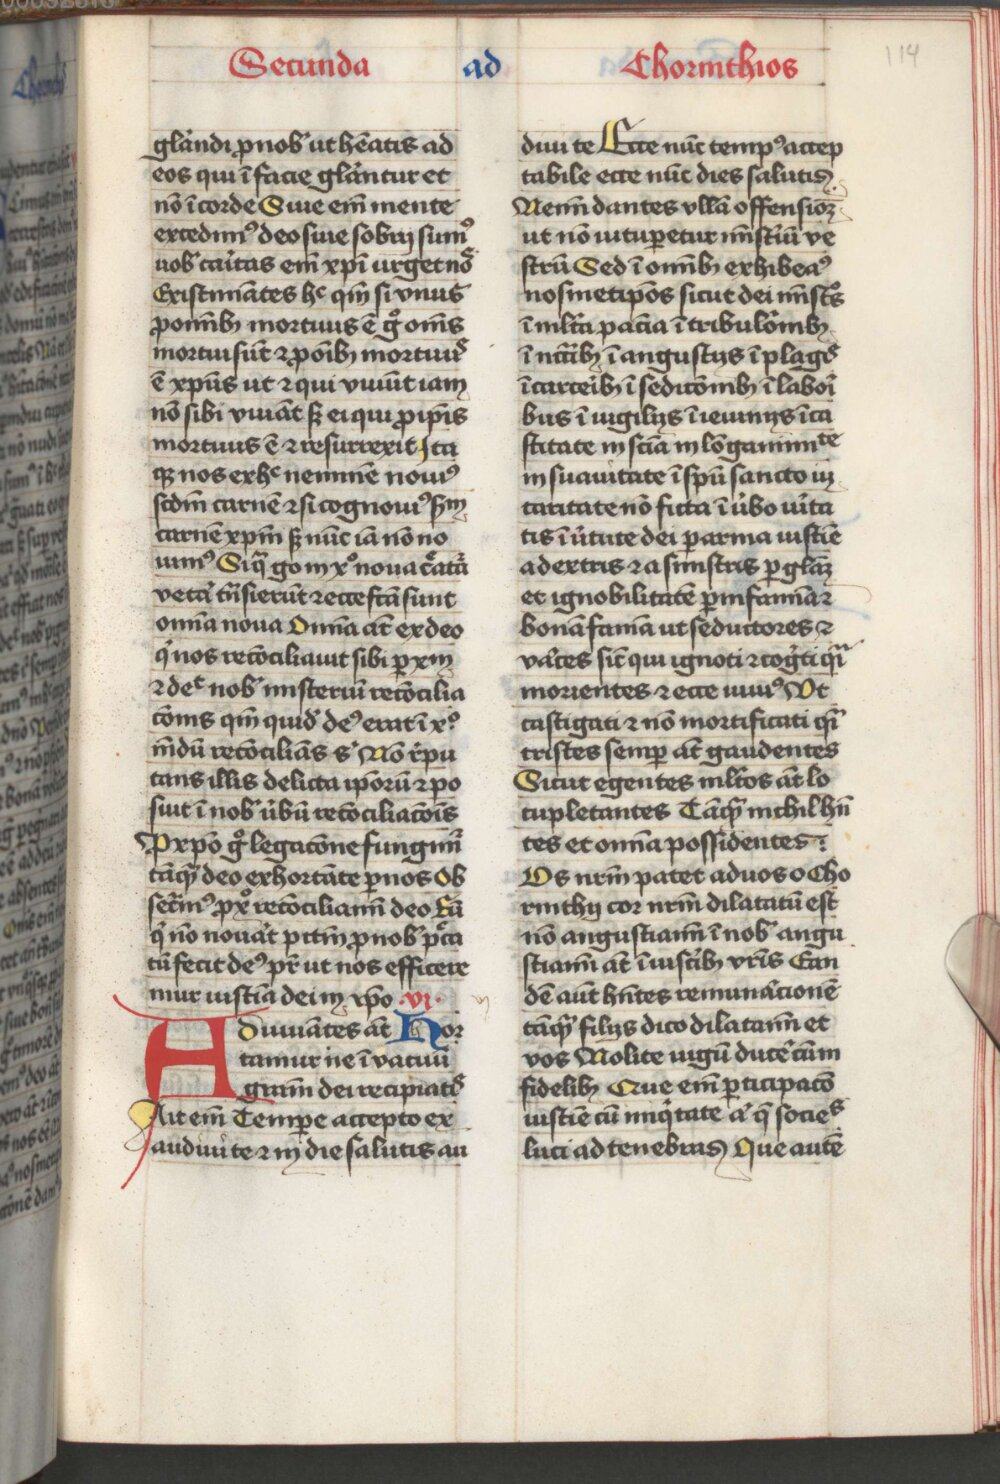 Secunda ad Chorinthios
114
gl̄andi ꝓ nob̄ ut hēatis ad
eos qui ī facie gl̄antur et
nō ī corde Siue em̄ mente
excedimꝰ deo siue sobrij sumꝰ
uob̄ caritas em̄ xp̄i urget nos
Existimātes hᶜ qm̄ si vnus
ꝓ omībꝫ mortuus ē gͦ om̄s
mortui sūt ⁊ ꝓ oībꝫ mortuus
ē xp̄us ut ⁊ qui viuūt iam
nō sibi viuāt sꝫ ei qui ꝓ ip̄is
mortuus ē ⁊ resurrexit Ita
qꝫ nos ex hᶜ neminē nouiꝰ
scdm̄ carnē ⁊ si cognouiꝰ sm̄
carnē xpm̄ sꝫ nūc iā nō no
uimꝰ Siq̄ gͦ in xͦ noua creatā
veta trāsierūt ⁊ ecce fcā sunt
omīa noua Omīa āt ex deo
q̇ nos recōciliauit sibi ꝑ xm̄
⁊ deᵗ nob̄ misteriū recōcilia
cōis qm̄ quid̄ deꝰ erat ī xͦ
mūdū recōciliās s̄ Nō repu
tans illis delicta ipōrū ⁊ po
suit ī nob̄ ūbū recōciliacōis
P xpō gͦ legacōne fungim̄
tāqᷓ deo exhortāte ꝑ nos Ob
secᵃmꝰ ꝓ xͦ recōciliamī deo Eū
q̇ nō nouāt pctm̄ ꝓ nob̄ pctā
tū fecit deꝰ pr̄ ut nos efficere
mur iusticīa dei in xpō ·vi·
Adiuuātes āt Hor
tamur ne ī vacuū
grām dei recipiatis
Ait em̄ Tempe accepto ex
audiui te ⁊ in die salutis au
diui te Ecce nūc tempꝰ accep
tabile ecce nūc dies salutis
Nemī dantes vllā offensioꝫ
ut nō uitupetur mīst̄iū ve
strū Sed ī omībꝫ exhibeaꝰ
nosmetip̄os sicut dei mīstros
ī mlt̄a paciā ī tribulōmbꝫ
ī nctībꝫ ī angustijs ī plagis
ī carceībꝫ ī sedicōmbꝫ ī labori
bus ī uigilijs ī ieiunijs ī ca
stitate in scīa in lōganimᵗᵉ
in suauitate ī spū sancto in
caritate nō ficta ī ūbo uīta
tis ī ūtute dei ꝑ arma iusticīe
a dextris ⁊ a sinistris ꝑ gl̄aꝫ
et ignobilitatē ꝑ infamīa ⁊
bonā famā ut seductores ⁊
vāces sīc qui ignoti ⁊ cogīti qᷓ
morientes ⁊ ecce uiuiꝰ Vt
castigati ⁊ nō mortificati qᷓ
tristes semp āt gaudentes
Sicut egentes mltos āt lo
cupletantes Tāqᷓ nichil hn̄
tes et omīa possidentes :
Os nr̄m patet ad uos o Cho
rinthij cor nr̄m dilatatū est
nō angustiamī ī nob̄ angu
stiamī āt ī uiscībꝫ vr̄is Ean
dē aūt hn̄tes remunācionē
tāqᷓ filijs dico dilatamī et
vos Nolite uigū ducē cum
fidelibꝫ Que em̄ pticipacō
iusticīe cū iniq̇tate aᵗ q̄ socies
luci ad tenebras Que autē